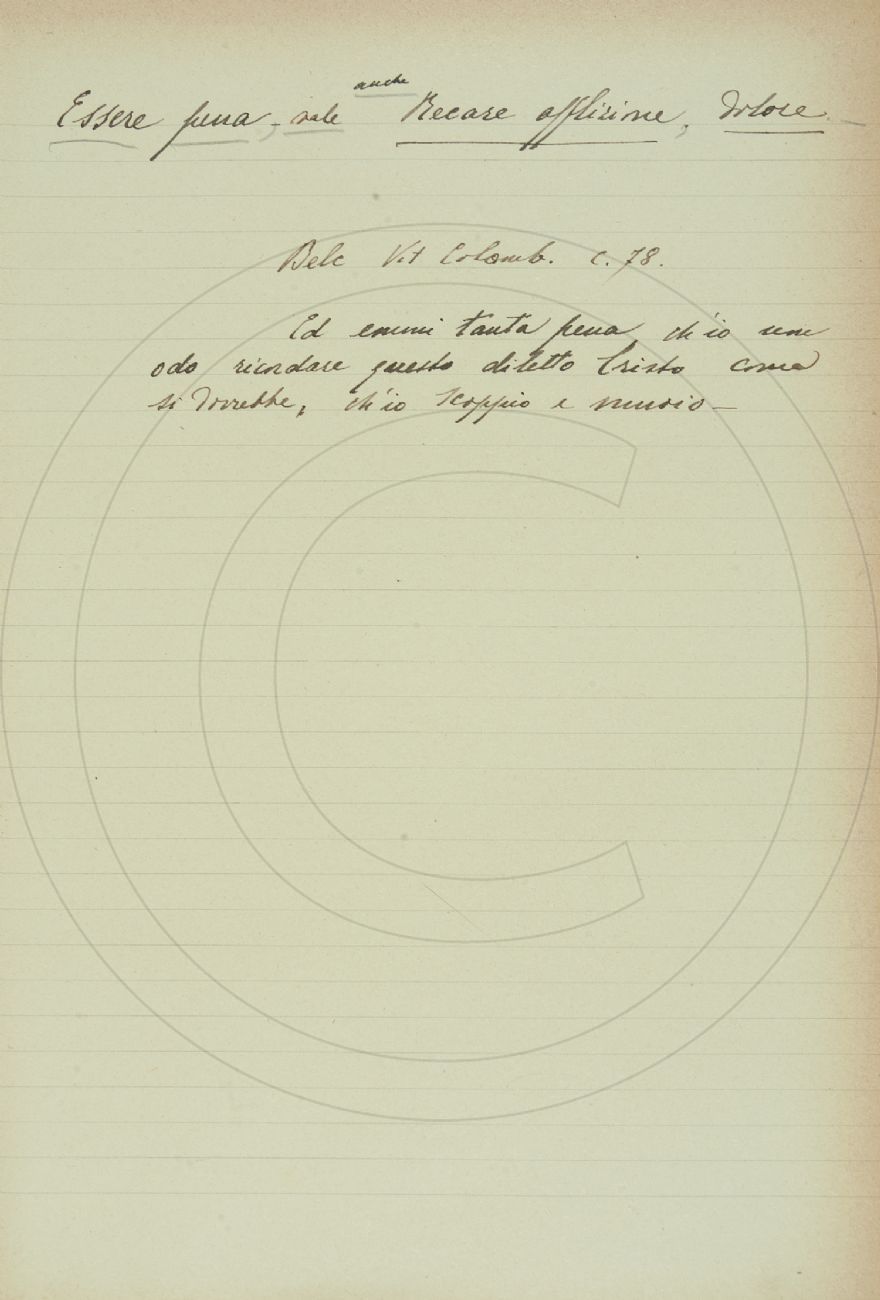 Essere pena, - vale anche Recare afflizione, dolore -
Belc Vit Colomb. c. 78.
Ed emmi tanta pena, ch'io non
odo ricordare questo diletto Cristo come
si dovrebbe, ch'io scoppio e muoio -